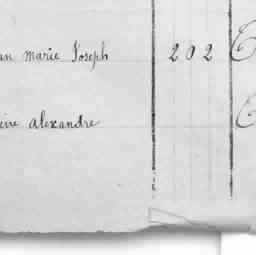 marie Joseph 202
alexandre